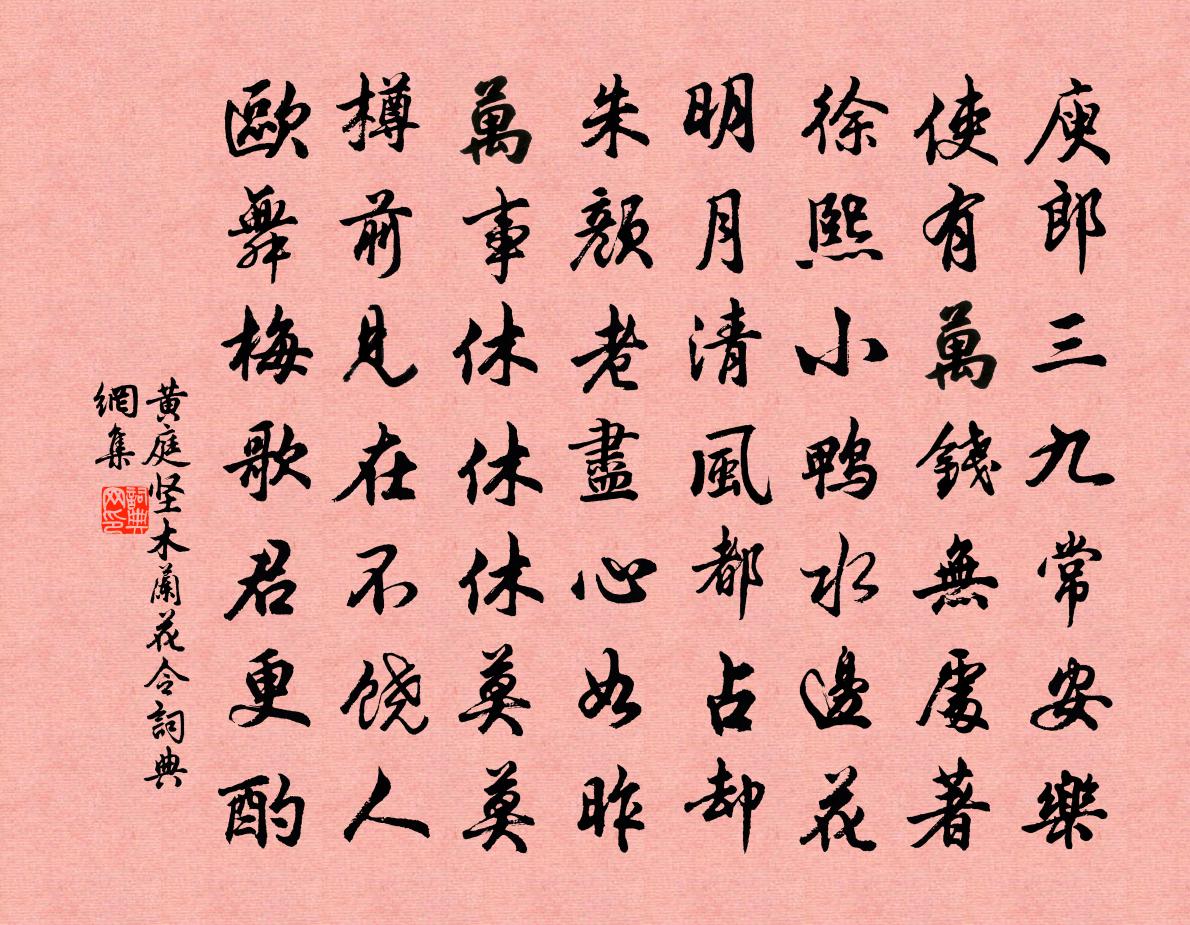 庾郎三九常安樂
使有萬錢無處著
徐熙小鴨水邊花
明月清風都占却
朱顏老盡心如昨
萬事休休休莫莫
樽前見在不饶人
歐舞梅歌君更酌
黄庭坚木蘭花令詞典
網集
詞典
网印